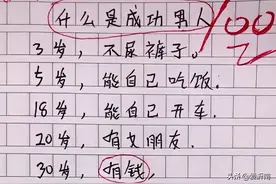 什么是成功男人
100
3岁，不尿裤子。
5岁，能自己吃饭.
18岁，能自己开车.
20岁，有女朋友.
30岁，有钱，
头条@爱沂南